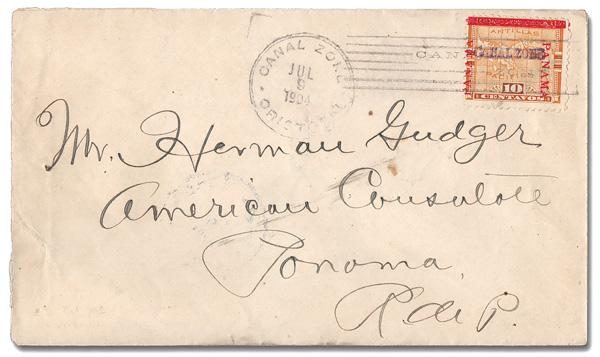 CANAL ZONE
JUL
9
1904
CRISTOBAL
CANAL ZONE
ANTILLAS
PANAMA
PANAMA
10
CENTAVOS
Mr. Herman Gudger
American Consulate
Panama,
R de P.